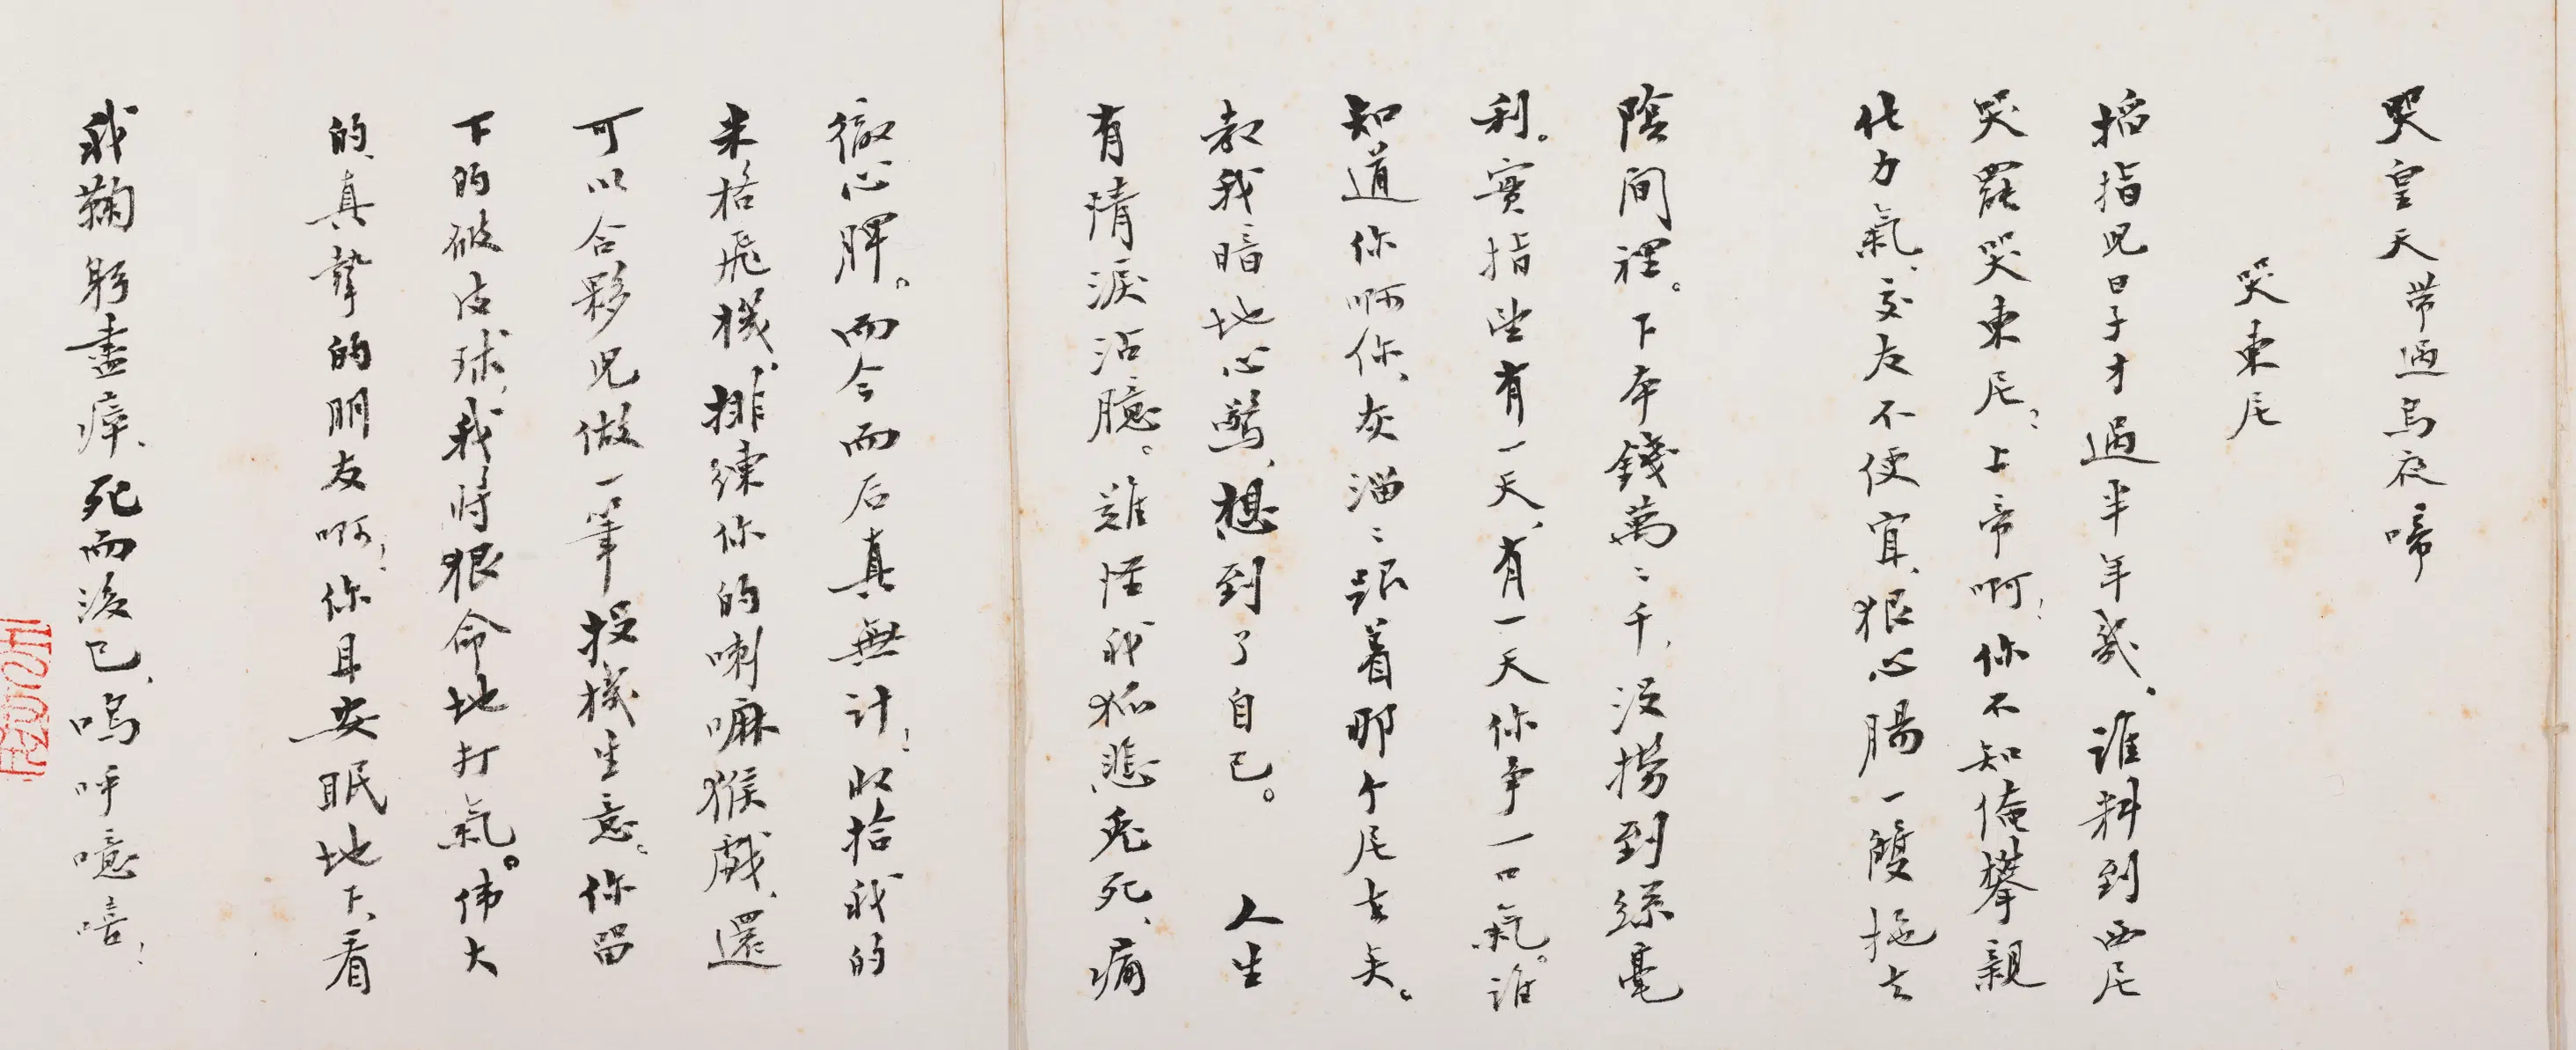 哭皇天帶過烏夜啼
哭東尼
掐指兒日子才過半年幾、誰料到西尼
哭罷哭東尼！上帝啊！你不知俺攀親
化力氣、交友不便宜、狠心腸一雙拖去
陰間裡。下本錢萬〻千、沒撈到絲毫
利。實指望有一天、有一天你爭一口氣。誰
知道你啊你、灰溜〻跟着那个尼去矣。
教我暗地心驚、想到了自己。　人生
有情淚沾臆。難怪我狐悲兔死、痛
徹心脾。而今而后真無計！收拾我的
米格飛機、排練你的喇嘛猴戲、還
可以合夥兒做一筆投機生意。你留
下的破皮球、我將狠命地打氣。伟大
的、真摯的朋友啊！你且安眠地下、看
我鞠躬盡瘁、死而後已、嗚呼噫嘻！